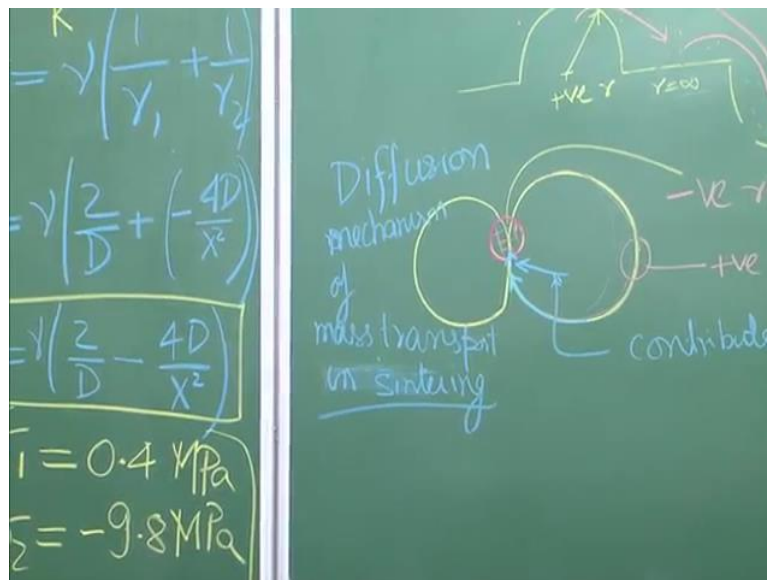 K
= γ(1/γ₁ + 1/γ₂)
= γ(2/D + (-4D/X²))
= γ(2/D - 4D/X²)
σ₁ = 0.4 MPa
σ₂ = -9.8 MPa
+ve r
r=∞
Diffusion
mechanism
of
mass transport
in sintering
-ve r
+ve
contribute